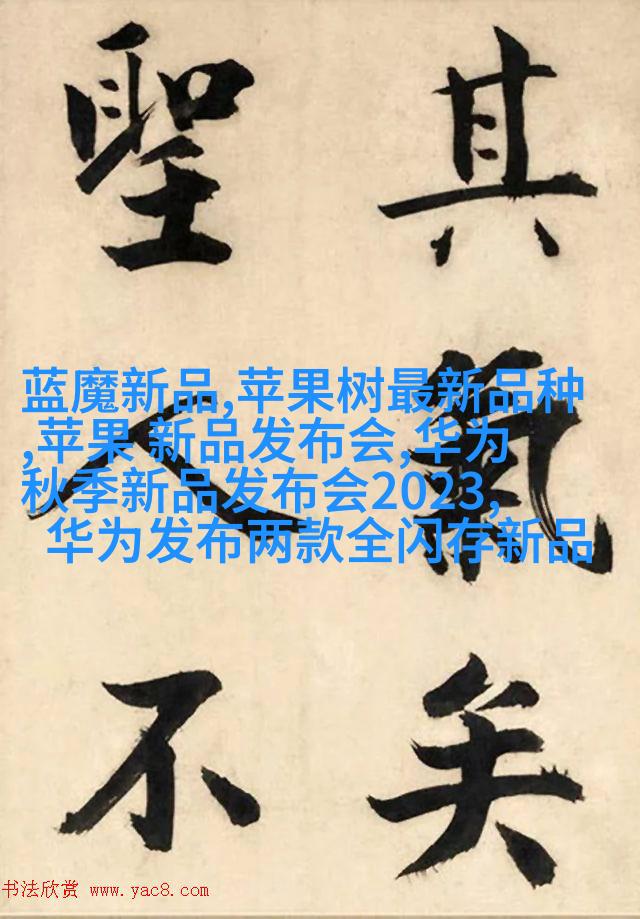 其氣矣
聖人不
蓝魔新品,苹果树最新品种
,苹果 新品发布会,华为
秋季新品发布会2023,
华为发布两款全闪存新品
书法欣赏 www.yac8.com